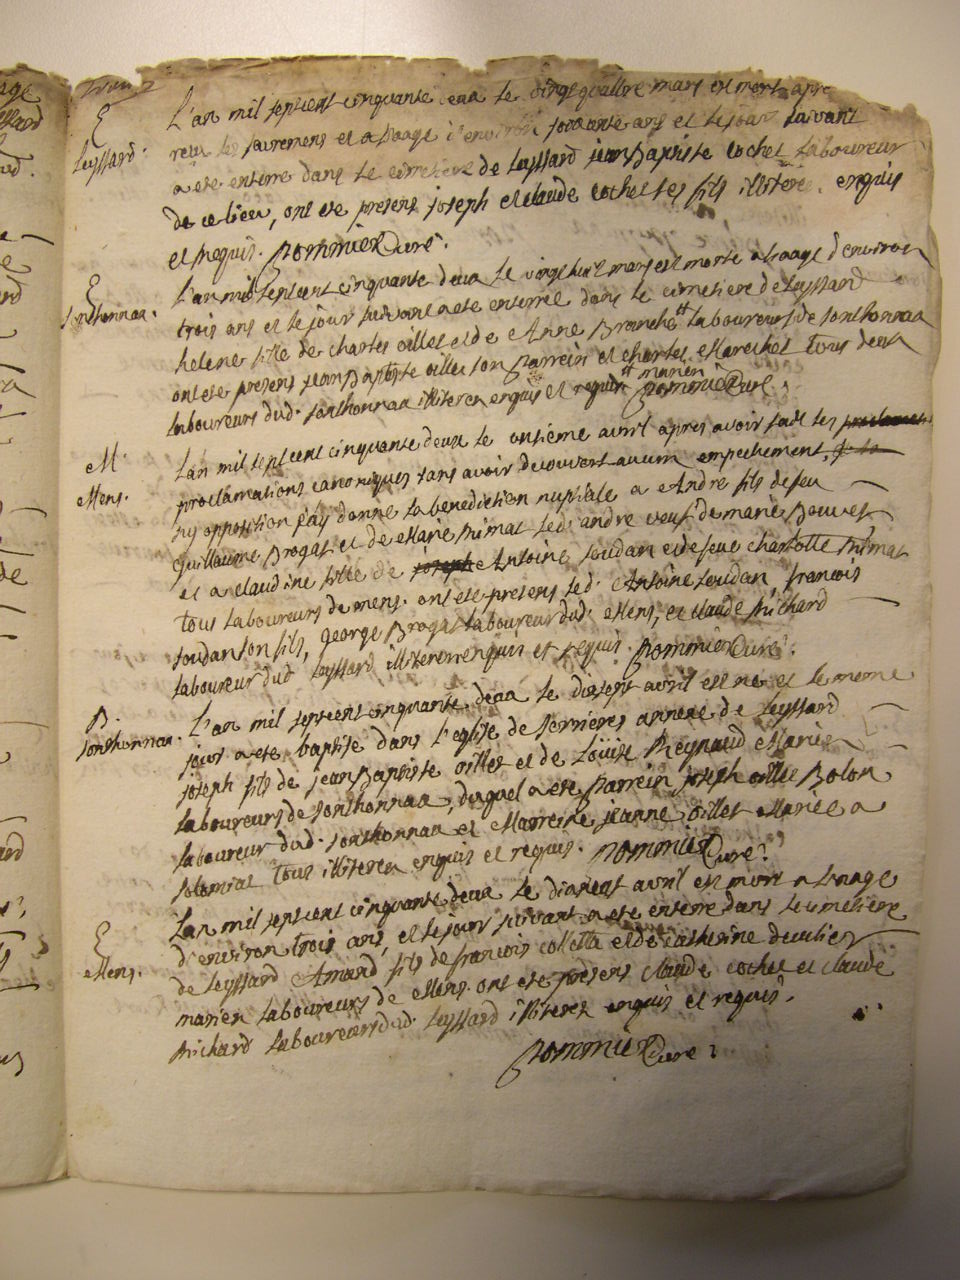 E
Leyssard.
L'an mil septcent cinquante deux le vingt quattre mars est mort apre
receu les sacremens et a l'aage d'environ soixante ans et le jour suivant
a eté enterré dans le cimetiere de Leyssard jean Baptiste cochet laboureur
de ce lieu, ont eté presens joseph et claude cochet ses fils illiteres enquis
et requis. Pommier Curé.
E
Sonthonnaa.
L'an mil septcent cinquante deux le vingt huit mars est morte a l'aage d'environ
trois ans et le jour suivant a eté enterrée dans le cimetiere de Leyssard
helene fille de charles oillet et de Anne Branche laboureurs de sonthonnaa
ont eté presens jean Baptiste oillet son Parrein et charles Marechet tous deux
laboureurs dud. sonthonnaa illiterez enquis et requis Pommier Curé.
M.
Mens.
L'an mil septcent cinquante deux le onsieme avril apres avoir fait les
proclamations canoniques sans avoir decouvert aucun empechement,
ny opposition j'ay donné la benediction nuptiale a André fils de feu
Guillaume Brogat et de Marie Primat led. andre veuf de marie Bouvet
et a claudine fille de joseph Antoine soudan et de feue charlotte Primat
tous laboureurs de mens. ont eté presens led. Antoine soudan, francois
soudan son fils, George Brogat laboureur dud. Mens, et claude Richard
laboureur dud Leyssard illiterez enquis et requis. Pommier Curé.
B.
Sonthonnaa.
L'an mil septcent cinquante deux le dixsept avril est né et le meme
jour a eté baptisé dans l'eglise de serrieres annexe de Leyssard
joseph fils de jean Baptiste oillet et de Louise Reynaud Mariez
laboureurs de sonthonnaa, duquel a eté Parrein joseph oillet Bolon
laboureur dud. sonthonnaa et Marreine jeanne oillet Mariée a
solomiat tous illiterez enquis et requis. Pommier Curé.
E
Mens.
L'an mil septcent cinquante deux le dixsept avril est mort a l'aage
d'environ trois ans, et le jour suivant a eté enterré dans le cimetiere
de Leyssard Amand fils de francois colletta et de catherine
mariez laboureurs de Mens. ont eté presens claude cochet et claude
Richard laboureurs dud. Leyssard illiterez enquis et requis.
Pommier Curé.